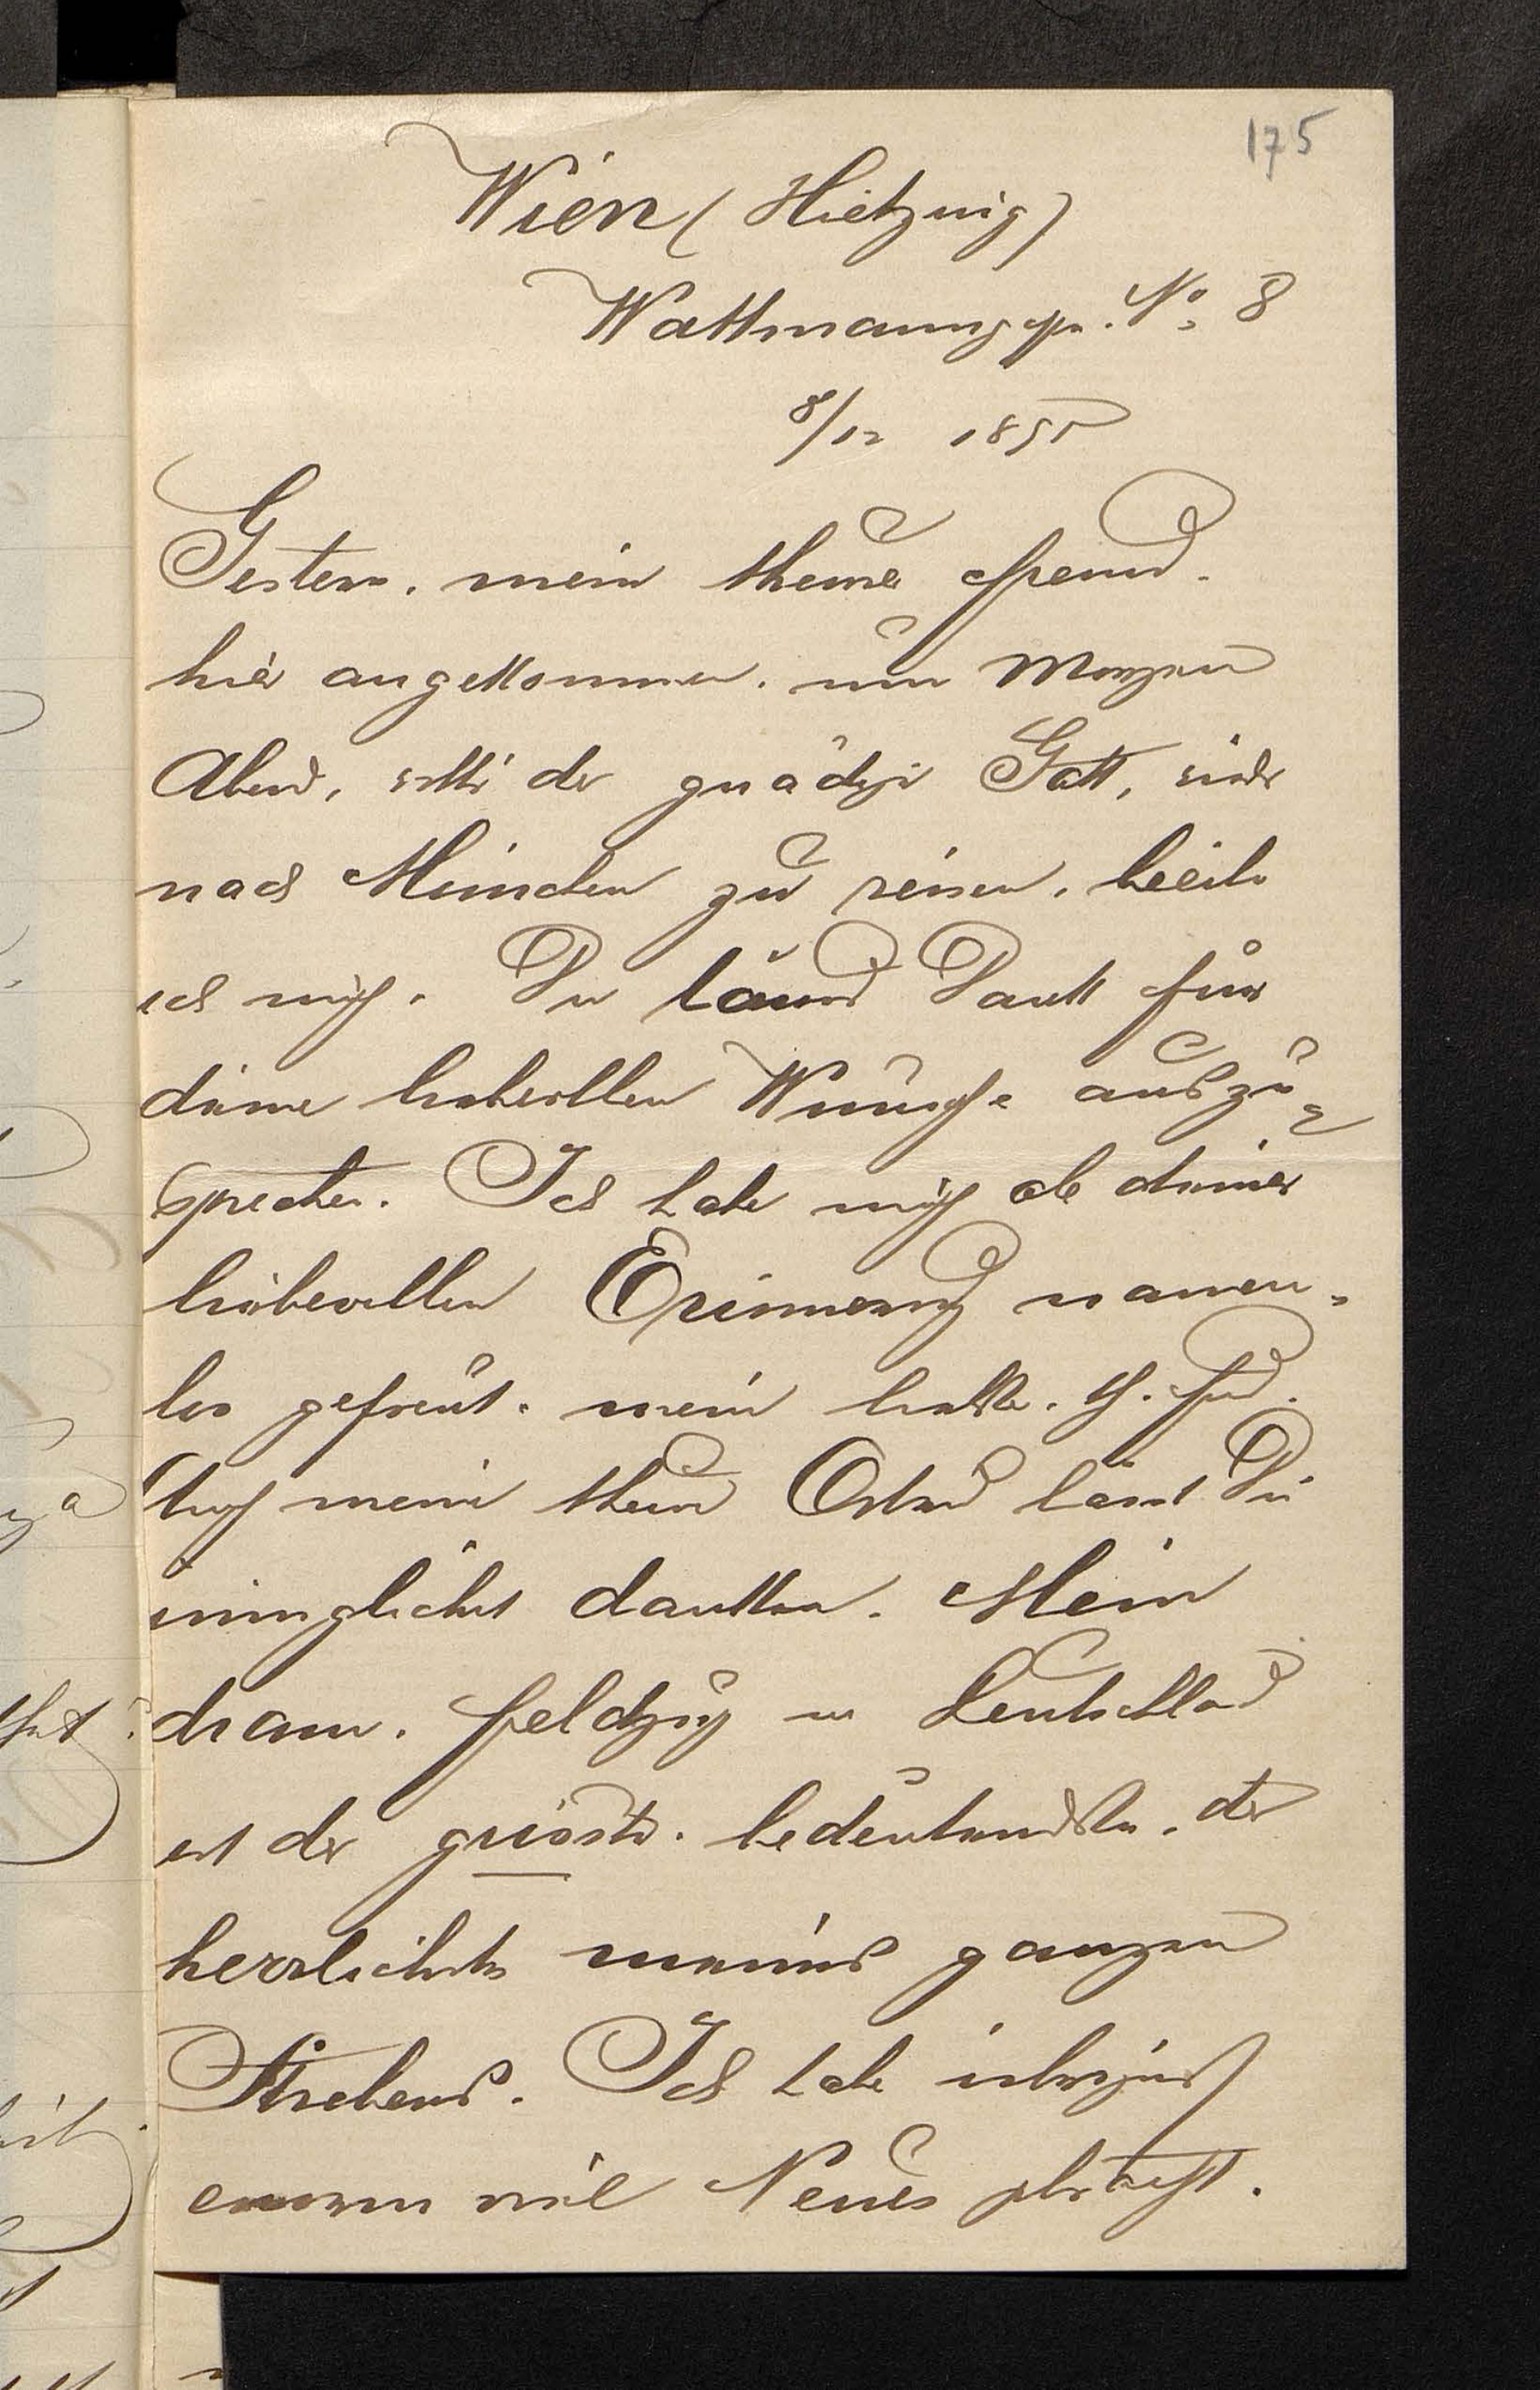 175
Wien (Hietzing)
Wattmanng. No. 8
8/12 189
Gestern, mein theurer Freund.
hier angekommen. um Morgen
Abend, will's der gnädige Gott, wieder
nach München zu reisen, beeile
ich mich. Dir Dank für
deine liebevollen Wünsche auszu-
sprechen. Ich habe mich ob deiner
liebevollen Erinnerung namen-
los gefreut. mein liebster. th. Frd.
Auch meine theure läßt Dir
inniglichst danken. Mein
dram. Feldzug in Deutschland
ist der grösste. bedeutendste. der
herrlichste meines ganzen
Strebens. Ich habe übrigens
enorm viel Neues gebracht.